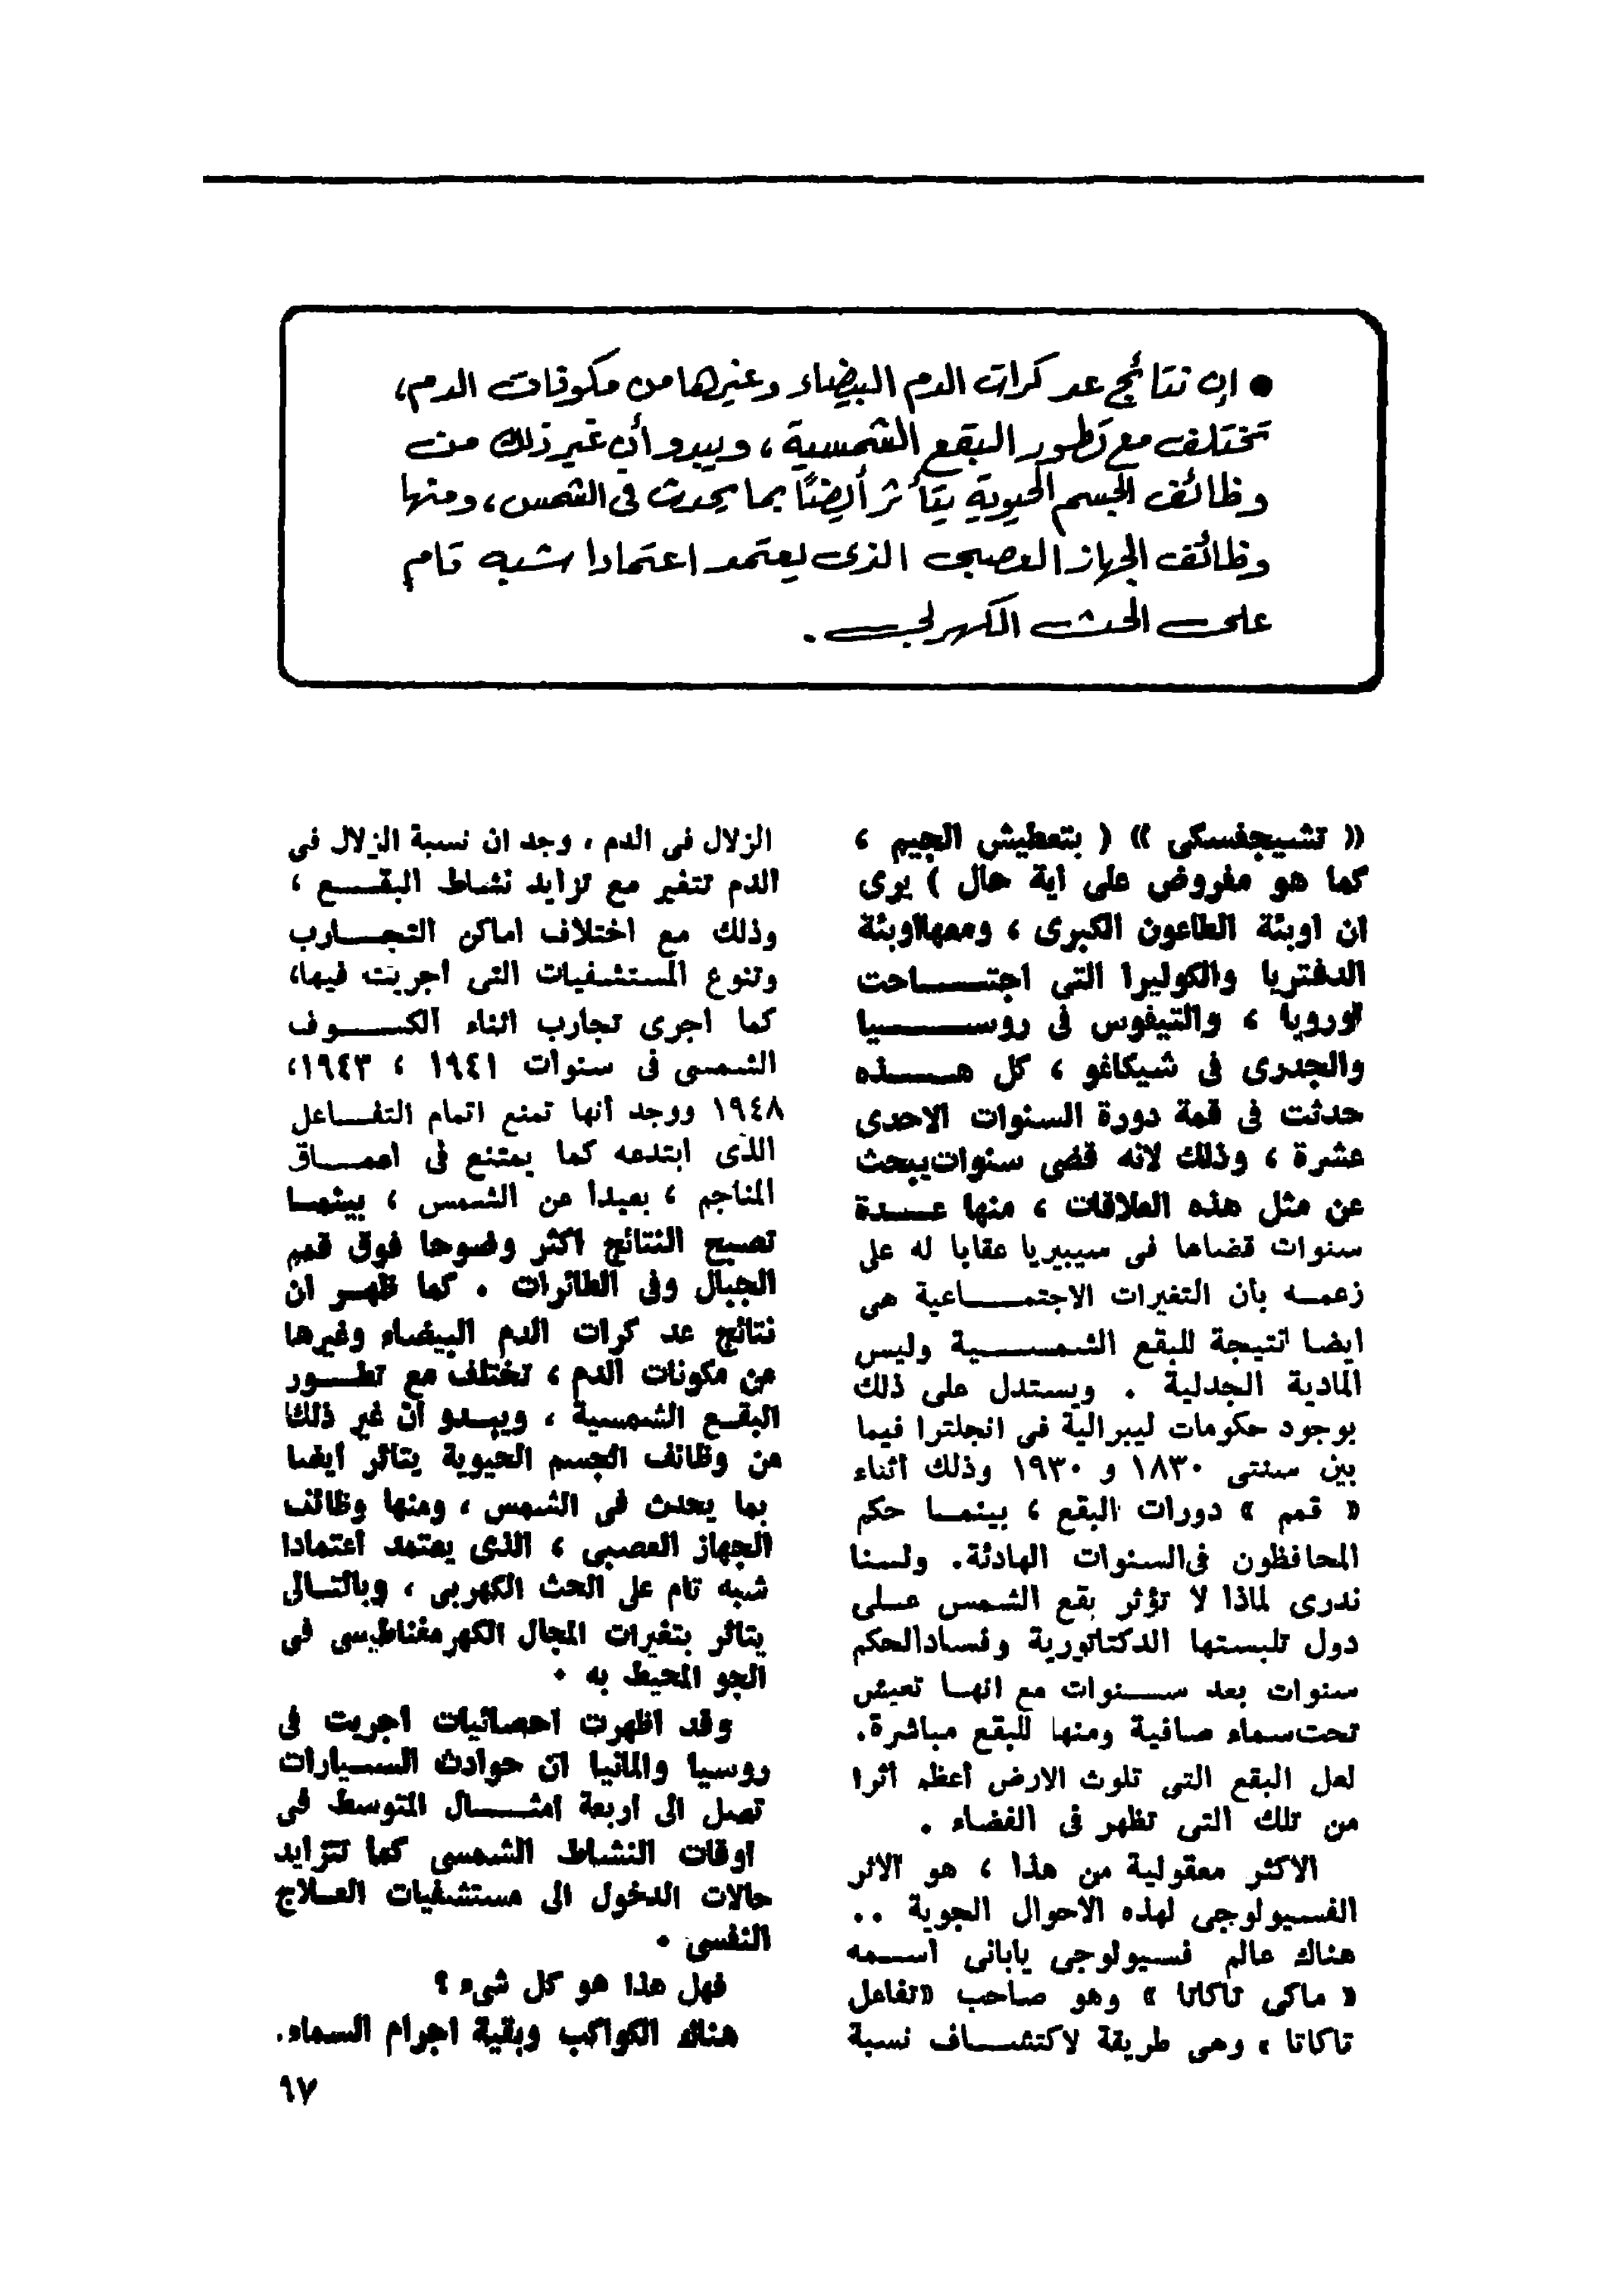 ● ان نتائج عد كرات الدم البيضاء وغيرها من مكونات الدم،
تختلف مع تطور البقع الشمسية، ويبدو أن غير ذلك من
وظائف الجسم الحيوية يتأثر أيضًا بما يحدث فى الشمس، ومنها
وظائف الجهاز العصبى الذى يعتمد اعتمادا شبه تام
على الحث الكهربى.
« تشيجفسكى » ( بتعطيش الجيم ،
كما هو مفروض على أية حال ) يرى
ان اوبئة الطاعون الكبرى ، ومعها اوبئة
الدفتريا والكوليرا التى اجتـــاحت
اوروبا ، والتيفوس فى روســـيا
والجدرى فى شيكاغو ، كل هـــذه
حدثت فى قمة دورة السنوات الاحدى
عشرة ، وذلك لانه قضى سنوات يبحث
عن مثل هذه العلاقات ، منها عـــدة
سنوات قضاها فى سيبيريا عقابا له على
زعمـه بأن التغيرات الاجتمـــاعية هى
ايضا نتيجة للبقع الشمســـية وليس
المادية الجدلية . ويستدل على ذلك
بوجود حكومات ليبرالية فى انجلترا فيما
بين سنتى ١٨٣٠ و ١٩٣٠ وذلك أثناء
« قمم » دورات البقع ، بينمـا حكم
المحافظون فى السنوات الهادئة. ولسنا
ندرى لماذا لا تؤثر بقع الشمس عـلى
دول تلبستها الدكتاتورية وفساد الحكم
سنوات بعد ســنوات مع انهـا تعيش
تحت سماء صافية ومنها للبقع مباشرة.
لعل البقع التى تلوث الارض أعظم أثرا
من تلك التى تظهر فى الفضاء .
الاكثر معقولية من هذا ، هو الاثر
الفسيولوجى لهذه الاحوال الجوية ..
هناك عالم فسيولوجى يابانى اســمه
« ماكى تاكاتا » وهو صاحب «تفاعل
تاكاتا » وهى طريقة لاكتشـــاف نسبة
الزلال فى الدم ، وجد ان نسبة الزلال فى
الدم تتغير مع تزايد نشاط البقـــع ،
وذلك مع اختلاف اماكن التجـــارب
وتنوع المستشفيات التى أجريت فيها،
كما اجرى تجارب اثناء الكســـوف
الشمسى فى سنوات ١٩٤١ ، ١٩٤٣،
١٩٤٨ ووجد أنها تمنع اتمام التفـــاعل
الذى ابتدعه كما يمتنع فى اعمـــاق
المناجم ، بعيدا عن الشمس ، بينمـا
تصبح النتائج اكثر وضوحا فوق قمم
الجبال وفى الطائرات . كما ظهـر ان
نتائج عد كرات الدم البيضاء وغيرها
من مكونات الدم ، تختلف مع تطـــور
البقـع الشمسية ، ويبـدو أن غير ذلك
من وظائف الجسم الحيوية يتأثر أيضا
بما يحدث فى الشمس ، ومنها وظائف
الجهاز العصبى ، الذى يعتمد اعتمادا
شبه تام على الحث الكهربى ، وبالتـالى
يتأثر بتغيرات المجال الكهرمغناطيسى فى
الجو المحيط به .
وقد اظهرت احصائيات أجريت فى
روسيا والمانيا ان حوادث السـيارات
تصل الى أربعة أمثـــال المتوسط فى
اوقات النشاط الشمسى كما تتزايد
حالات الدخول الى مستشفيات العـلاج
النفسى .
فهل هذا هو كل شىء ؟
هناك الكواكب وبقية اجرام السماء.
٩٧